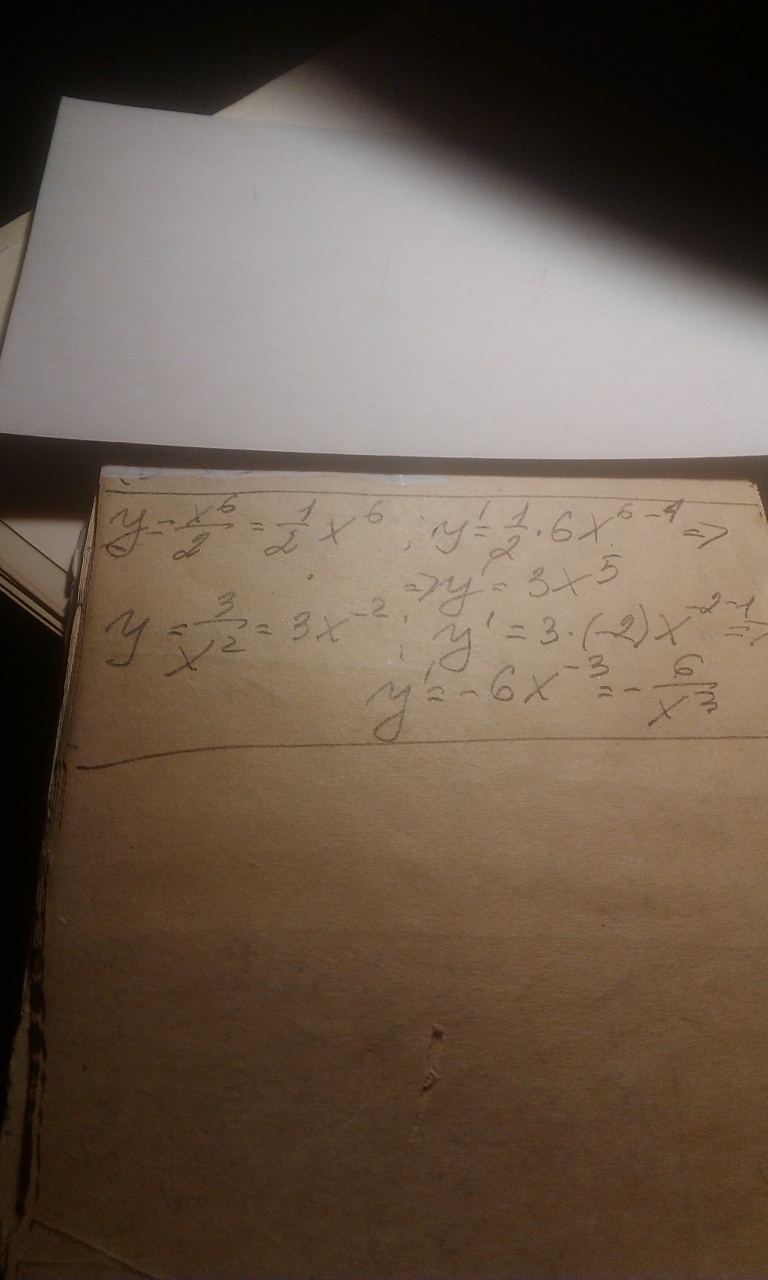 y = x^6/2 = 1/2 x^6 ; y' = 1/2 · 6x^{6-1} =>
=> y' = 3x^5
y = 3/x^2 = 3x^{-2} ; y' = 3·(-2)x^{-2-1} =>
y' = -6x^{-3} = - 6/x^3